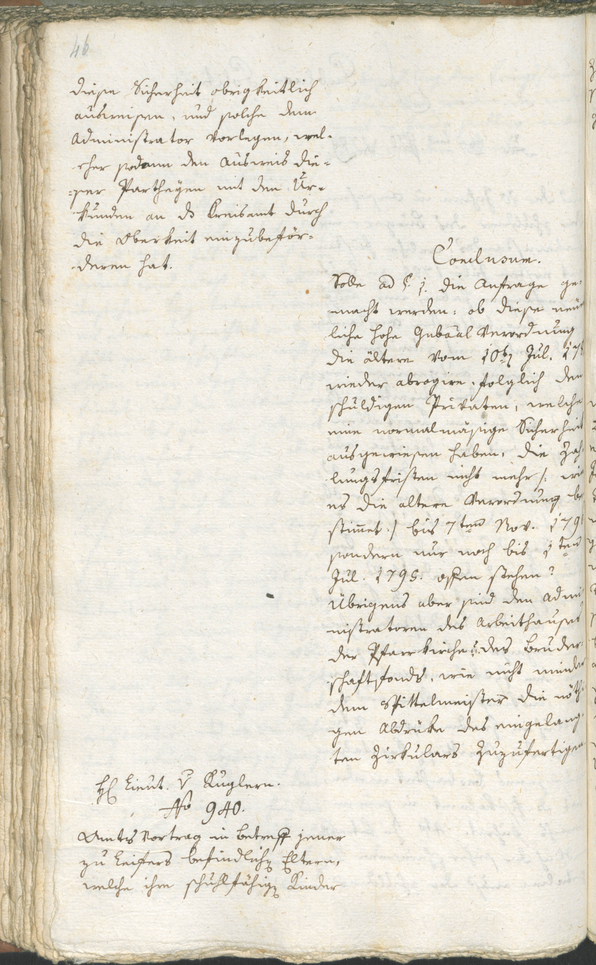 46
diese Sicherheit obrigkeitlich
ausweisen, und solche dem
Administrator vorlegen, wel-
cher sodann den Ausweis die-
ser Partheyen mit den Ur-
kunden an das Kreisamt durch
die Oberkeit einzubeför-
deren hat.
Conclusum.
Solle ad § 1. die Anfrage ge-
macht werden: ob diese neu
liche hohe Gubäal Verordnung
die ältere vom 10ten Jul. 178
wieder abrogire, folglich den
schuldigen Privaten, welche
eine normalmäsige Sicherheit
ausgewiesen haben, die Zah
lungsfristen nicht mehr /: wie
es die altere Verordnung be
stimmet :/ bis 7ten Nov. 179
sondern nur noch bis 1ten
Jul. 1795. offen stehen?
Übrigens aber sind den Admi
nistratoren des Arbeithauses
der Pfarrkirche, des Bruder
schaftsfonds, wie nicht minder
dem Spittelmeister die nöth
gen Abdrüke des eingelang
ten Zirkulars zuzufertigen
H Lieut. v Kuglern.
No 940.
Amts Vortrag in Betreff jener
zu Leifers befindlichen Eltern,
welche ihre schulfähigen Kinder